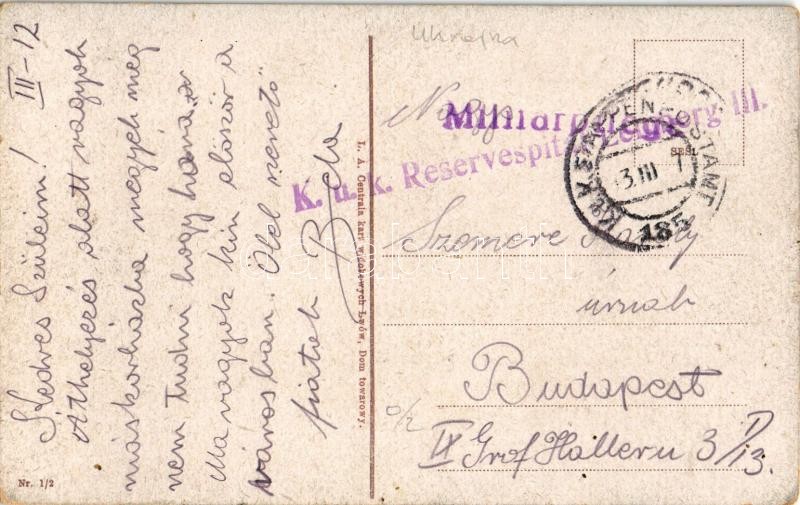 III-12
Kedves Szüleim!
áthelyezés alatt vagyok
máskorházba megyek még
nem tudni hogy hova,
Ma vagyok kin először a
városban. Ölel szerető
fiatok
Béla
Nr. 1/2
L. A. Centrala kart widokowych Lwów, Dom towarowy.
Ukrajna
Nagys
K. u. k. Reservespital Lemberg III.
K.u.K. ETAPPENPOSTAMT
3. III
185
Szemere
úrnak
Budapest
IX Gróf Haller u 3/I 13.